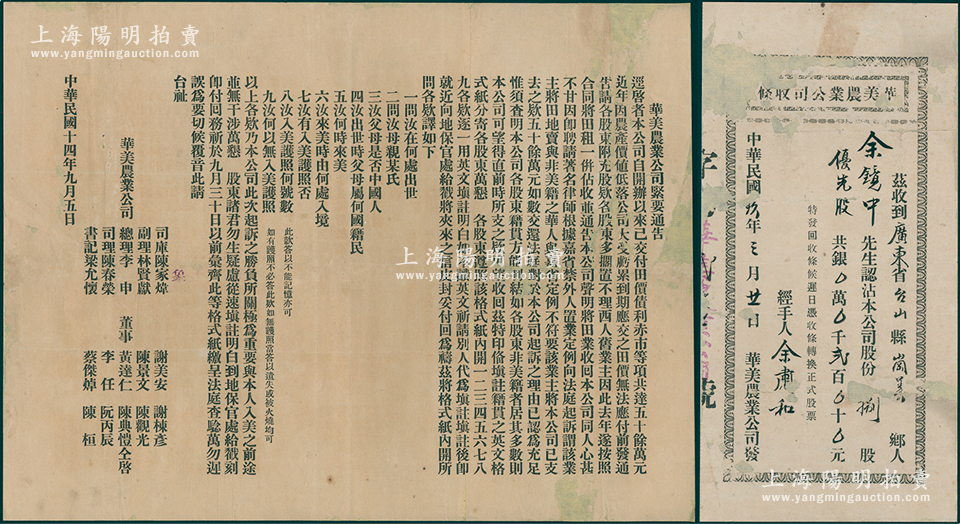 上海陽明拍賣
www.yangmingauction.com
華美農業公司緊要通告
逕啓者本公司自開辦以來已交付田價債利赤市等項共達五十餘萬元
近年因農產價值低落公司大受虧累到期應交之田價無法應付前發通
告請各股東附充股欵各股東多擱置不理西人舊業主因此去年遂按照
合同將田租一併佔收並通告本公司聲明將田業收回本公司同人心甚
不甘因即聘請著名律師根據嘉省禁外人置業定例向法庭起訴謂該業
主將田地賣與非美籍之華人與該定例不符要該業主將本公司已支
去之欵五十餘萬元如數交還法庭對於本公司起訴之理由已認為充足
惟須查明本公司各股東籍貫方能判結如各股東非美籍者居其多數則
本公司可望得直前時所支之欵可以收回茲特印俻填註籍貫之英文格
式紙分寄各股東萬懇 各股東遵照該格式紙內開一二三四五六七八
九各欵逐一用英文填註明白如不識英文祈請別人代為填註填註後即
就近向地保官處給戳將夾來之信封封妥付回為禱茲將格式紙內開所
問各欵譯如下
一問汝在何處出世
二問汝母親某氏
三汝父母是否中國人
四汝出世時父母屬何國籍民
五汝何時來美
六汝來美時由何處入境
七汝有入美護照否
八汝入美護照何號數 此欵答以不能記憶亦可
九汝何以無入美護照 如有護照不必答此欵如無護照當答以遺失或被火燒均可
以上各欵乃本公司此次起訴之勝負所關極為重要與本人入美之前途
並無干涉萬懇 股東諸君勿生疑慮從速填註明白到地保官處給戳刻
即付回務祈於九月三十日以前彙齊此等格式紙繳呈法庭查騐萬勿遲
誤為要切候覆音此請
台祉
華美農業公司
司庫陳家煒
副理林賢獻
總理李 申
司理陳春榮
書記梁允懷
董事
謝美安 謝棟彥
陳景文 陳觀光
黃達仁 陳典愷仝啓
李 任 阮丙辰
蔡傑焯 陳 桓
中華民國十四年九月五日
華美農業公司收條
茲收到廣東省台山縣 鄉人
余鏡中先生認沾本公司股份捌股
優先股 共銀0萬0千弍百0十0元
特發回收條候遲日憑收條轉換正式股票
經手人余肅和
中華民國玖年三月廿日 華美農業公司發
字 號
上海陽明拍賣
www.yangmingauction.com